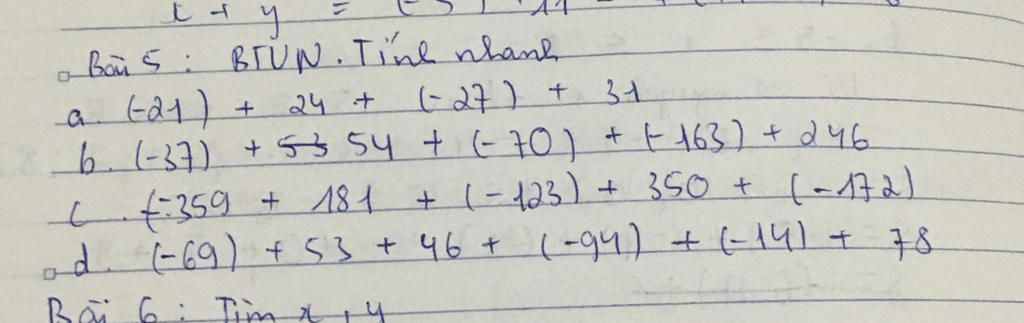 x + y = (-5) + 11
Bài 5 : BTVN. Tính nhanh
a. (-21) + 24 + (-27) + 31
b. (-37) + 53 54 + (-70) + (-163) + 246
c. -359 + 181 + (-123) + 350 + (-172)
d. (-69) + 53 + 46 + (-94) + (-14) + 78
Bài 6 : Tìm x, y